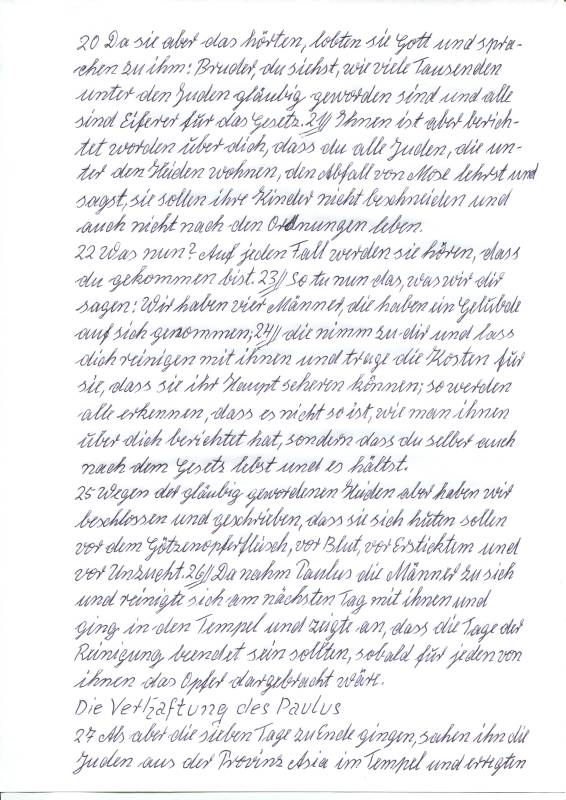 20 Da sie aber das hörten, lobten sie Gott und spra-
chen zu ihm: Bruder, du siehst, wie viele Tausenden
unter den Juden gläubig geworden sind und alle
sind Eiferer für das Gesetz. 21// Ihnen ist aber berich-
tet worden über dich, dass du alle Juden, die un-
ter den Heiden wohnen, den Abfall von Mose lehrst und
sagst, sie sollen ihre Kinder nicht beschneiden und
auch nicht nach den Ordnungen leben.
22 Was nun? Auf jeden Fall werden sie hören, dass
du gekommen bist. 23// So tu nun das, was wir dir
sagen: Wir haben vier Männer, die haben ein Gelübde
auf sich genommen; 24// die nimm zu dir und lass
dich reinigen mit ihnen und trage die Kosten für
sie, dass sie ihr Haupt scheren können; so werden
alle erkennen, dass es nicht so ist, wie man ihnen
über dich berichtet hat, sondern dass du selber auch
nach dem Gesetz lebst und es hältst.
25 Wegen der gläubig gewordenen Heiden aber haben wir
beschlossen und geschrieben, dass sie sich hüten sollen
vor dem Götzenopferfleisch, vor Blut, vor Ersticktem und
vor Unzucht. 26// Da nahm Paulus die Männer zu sich
und reinigte sich am nächsten Tag mit ihnen und
ging in den Tempel und zeigte an, dass die Tage der
Reinigung beendet sein sollten, sobald für jeden von
ihnen das Opfer dargebracht wäre.
Die Verhaftung des Paulus
27 Als aber die sieben Tage zu Ende gingen, sahen ihn die
Juden aus der Provinz Asia im Tempel und erregten